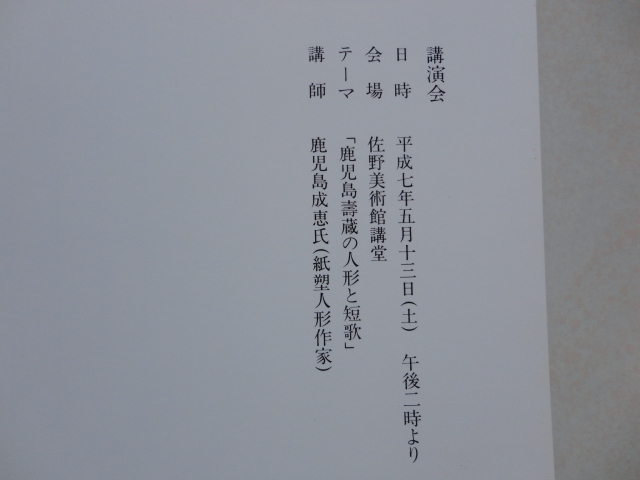 講演会
日時 平成七年五月十三日(土) 午後二時より
会場 佐野美術館講堂
テーマ 「鹿児島壽蔵の人形と短歌」
講師 鹿児島成恵氏(紙塑人形作家)